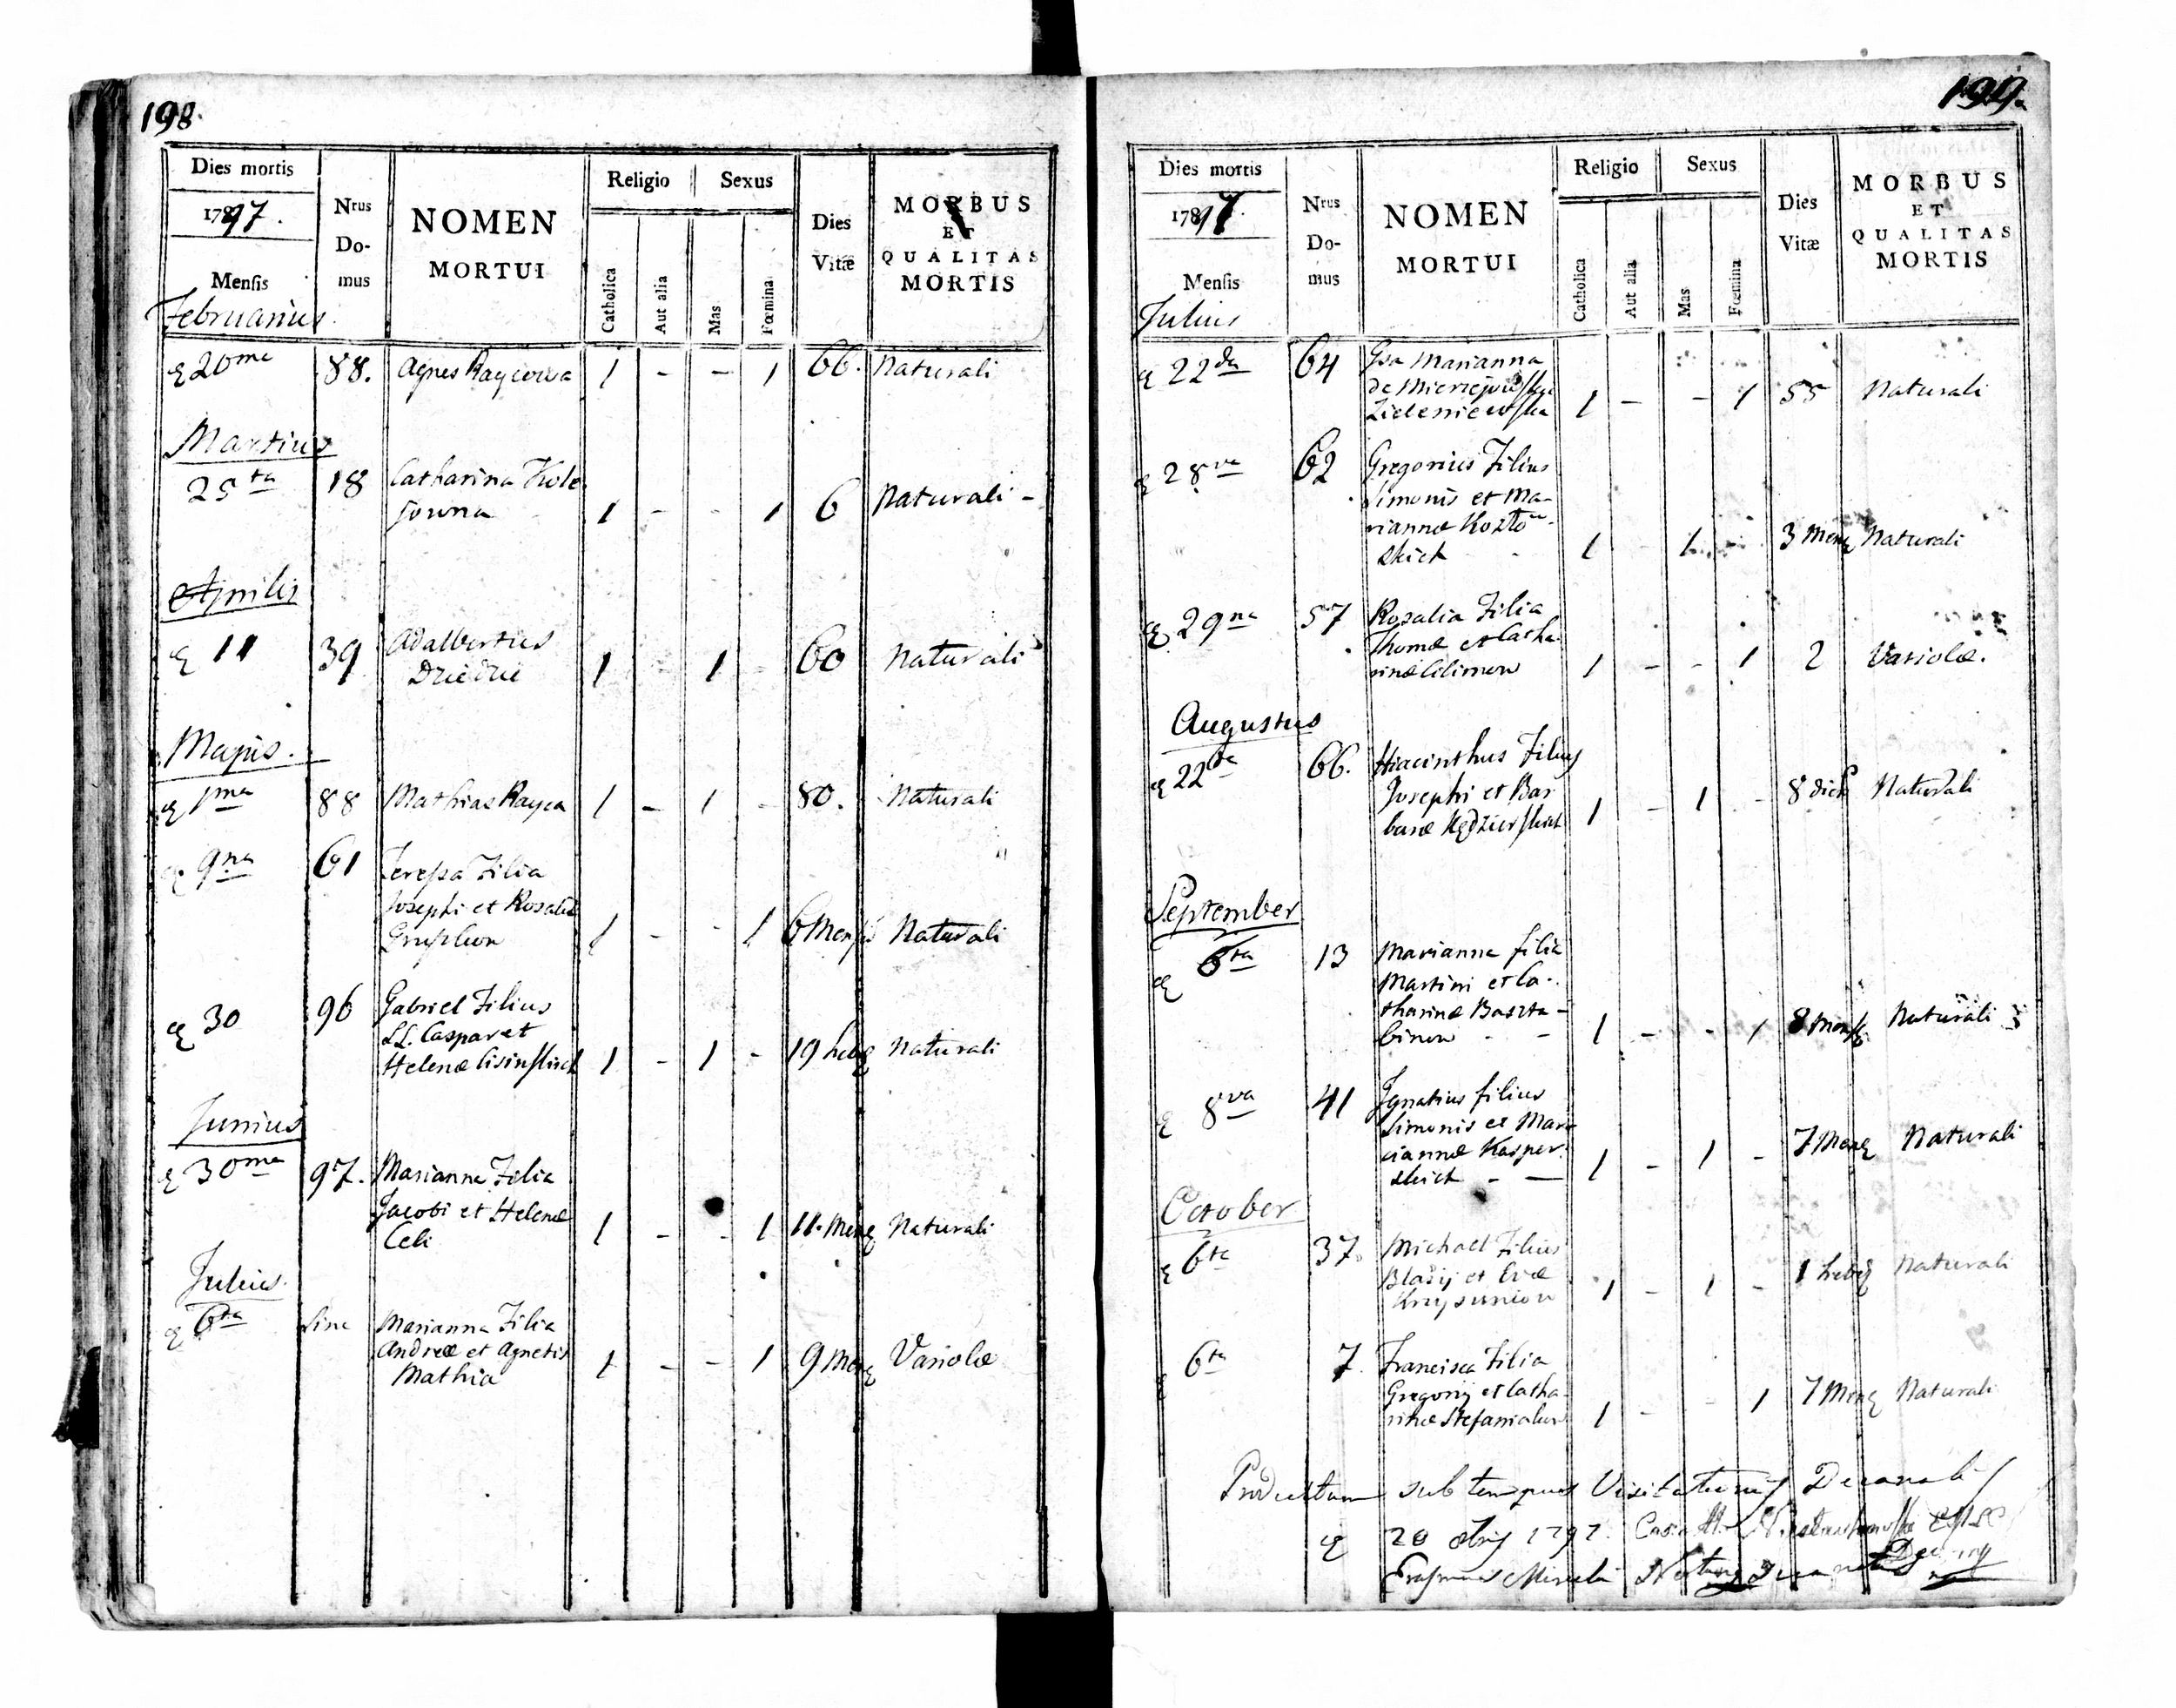 198.
Dies mortis
1797.
Mensis
Nrus
Do-
mus
NOMEN
MORTUI
Religio
Sexus
Catholica
Aut alia
Mas
Fœmina
Dies
Vitæ
MORBUS
ET
QUALITAS
MORTIS
Februarius
20ma 88. Agnes Raycowa 1 - - 1 66. Naturali
Martius
25ta 18 Catharina Kole
sowna 1 - - 1 6 Naturali -
Aprilis
11 39 Adalbertus
Dziedzic 1 - 1 - 60 Naturali
Majus.
1ma 88 Mathias Rayca 1 - 1 - 80. Naturali
9na 61 Teressa Filia
Josephi et Rosaliæ
1 - - 1 6 Mens Naturali
30 96 Gabriel Filius
LL. Caspar et
Helenæ Cisinskich 1 - 1 - 19 hebd Naturali
Junius
30ma 97. Marianna Filia
Jacobi et Helenæ
Celi 1 - - 1 11. Mens Naturali
Julius.
6ta Sine Marianna Filia
Andreæ et Agnetis
Mathia 1 - - 1 9 Mens Variolæ
199.
Dies mortis
1797.
Mensis
Nrus
Do-
mus
NOMEN
MORTUI
Religio
Sexus
Catholica
Aut alia
Mas
Fœmina
Dies
Vitæ
MORBUS
ET
QUALITAS
MORTIS
Julius
22da 64 Gsa Marianna
de Mierzejewska
Zieleniewska 1 - - 1 55 Naturali
28va 62 Gregorius Filius
Simonis et Ma-
riannæ Kozło-
skich 1 - 1 - 3 Mens Naturali
29na 57 Rosalia Filia
Thomæ et Catha-
rinæ Climow 1 - - 1 2 Variolæ.
Augustus
22da 66. Hiacinthus Filius
Josephi et Bar
baræ Kędzierskich 1 - 1 - 8 dieb Naturali
September
6ta 13 Marianna filia
Martini et Ca-
tharinæ Baszta-
binow - - 1 - - 1 8 Mens Naturali
8va 41 Ignatius filius
Simonis et Mar
iannæ Kasper
skich - - 1 - 1 - 7 Mens Naturali
October
6ta 37. Michael Filius
Blasij et Evæ
Krzysuniow 1 - 1 - 1 hebd Naturali
6ta 7. Francisca Filia
Gregorij et Catha-
rinæ Stefaniakow 1 - - 1 7 Mens Naturali
Productum sub tempus Visitationis Decanalis
20 8bris 1797.